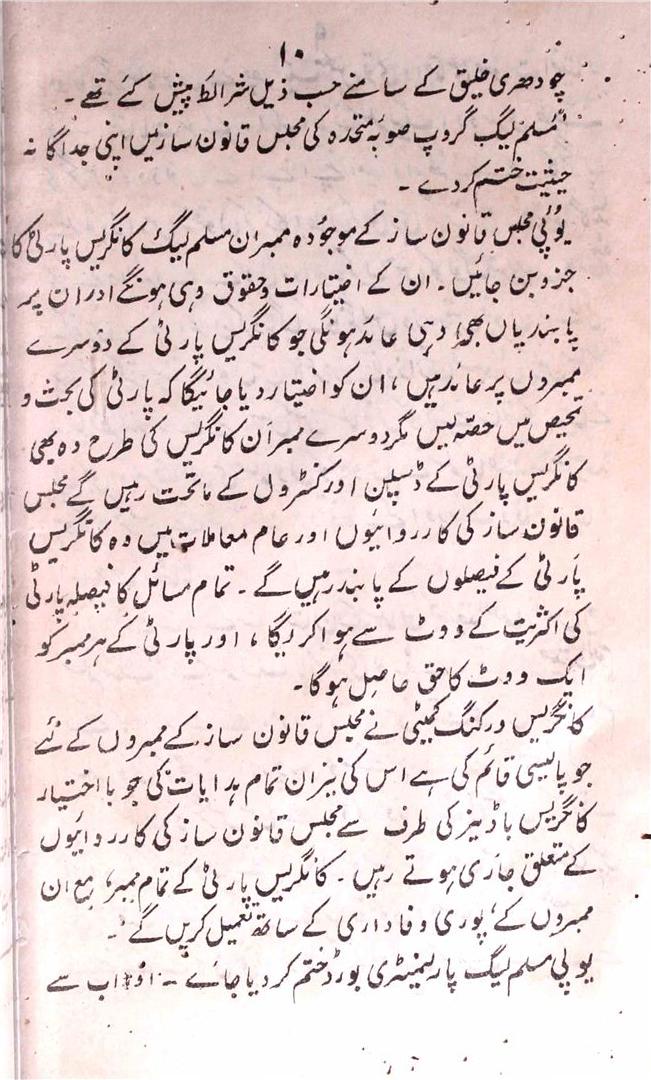 ۱۰
چودھری خلیق کے سامنے حسب ذیل شرائط پیش کئے تھے۔
"مُسلم لیگ گروپ صوبہ متحدہ کی مجلس قانون ساز میں اپنی جداگانہ
حیثیت ختم کر دے۔
یُوپی مجلس قانون ساز کے موجُودہ ممبران مسلم لیگ کانگریس پارٹی کا
جزو بن جائیں۔ ان کے اختیارات و حقوق وہی ہونگے اور ان پر
پابندیاں بھی وہی عائد ہونگی جو کانگریس پارٹی کے دوسرے
ممبروں پر عائد ہیں، ان کو اختیار دیا جائیگا کہ پارٹی کی بحث و
تمحیص میں حصّہ لیں مگر دوسرے ممبران کانگریس کی طرح وہ بھی
کانگریس پارٹی کے ڈسپلن اور کنٹرول کے ماتحت رہیں گے مجلس
قانون ساز کی کارروائیوں اور عام معاملات میں وہ کانگریس
پارٹی کے فیصلوں کے پابند رہیں گے۔ تمام مسائل کا فیصلہ پارٹی
کی اکثریت کے ووٹ سے ہوا کریگا، اور پارٹی کے ہر ممبر کو
ایک ووٹ کا حق حاصل ہوگا۔
کانگریس ورکنگ کمیٹی نے مجلس قانون ساز کے ممبروں کے لئے
جو پالیسی قائم کی ہے اس کی نیز ان تمام ہدایات کی جو بااختیار
کانگریس باڈیز کی طرف سے مجلس قانون ساز کی کارروائیوں
کے متعلق جاری ہوتے رہیں۔ کانگریس پارٹی کے تمام ممبر، مع ان
ممبروں کے، پوری وفاداری کے ساتھ تعمیل کریں گے۔
یوپی مسلم لیگ پارلیمنٹری بورڈ ختم کر دیا جائے۔ اور اب سے